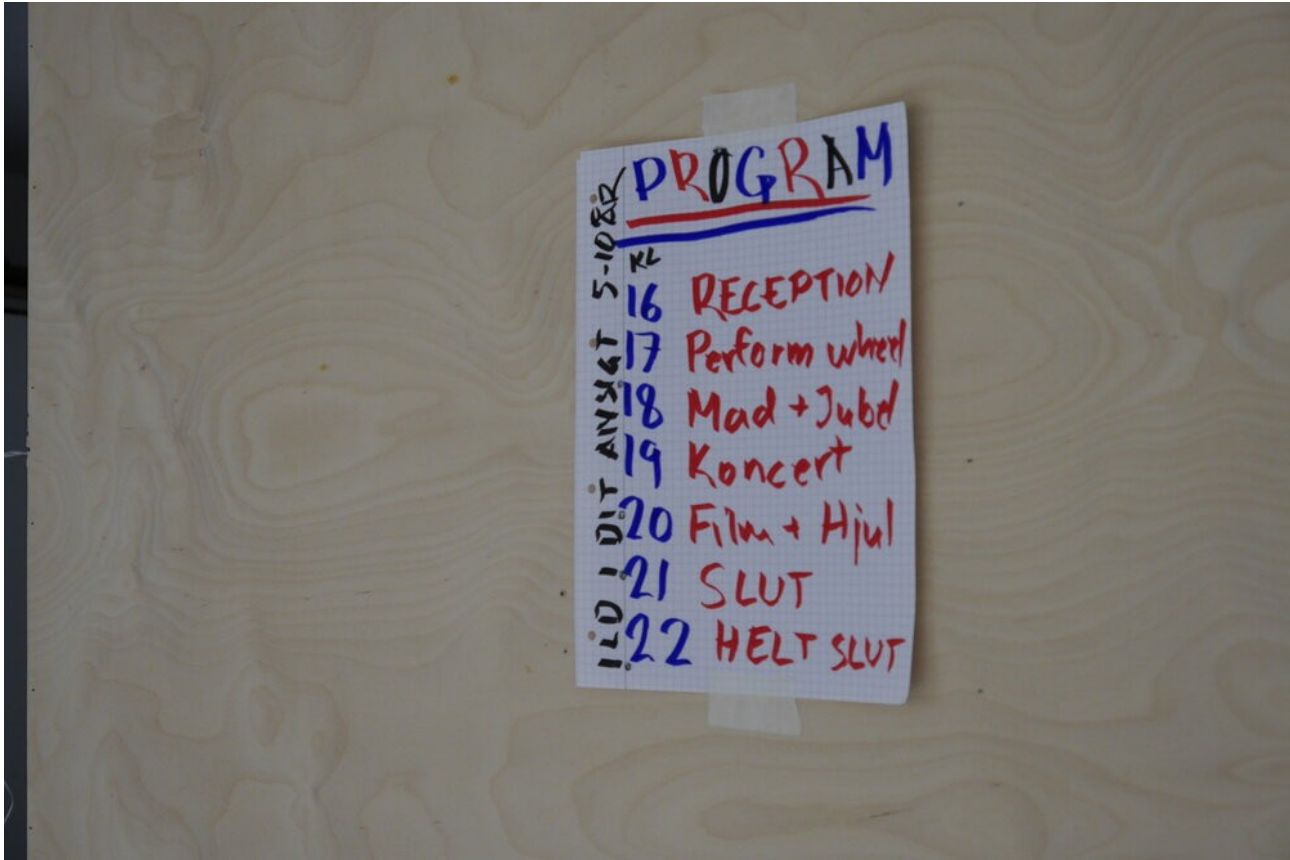 PROGRAM
KL
16 RECEPTION
17 Perform wheel
18 Mad + Jubel
19 Koncert
20 Film + Hjul
21 SLUT
22 HELT SLUT
ILD I DIT ANSIGT 5-10 ÅR